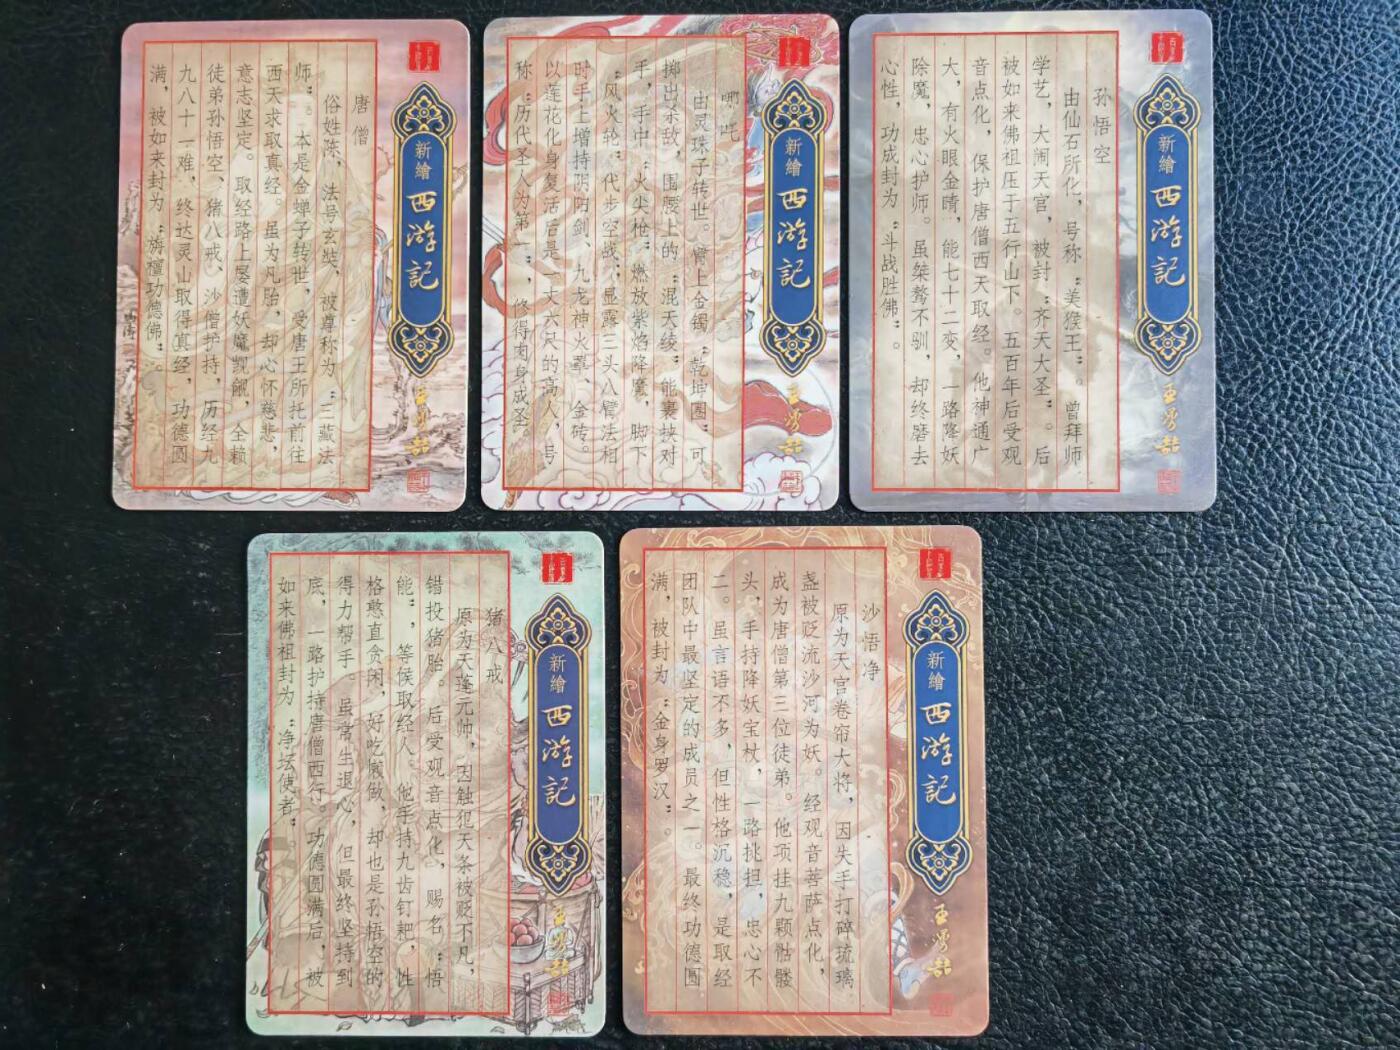 唐僧
俗姓陈，法号玄奘，被尊称为“三藏法
师”。本是金蝉子转世，受唐王所托前往
西天求取真经。虽为凡胎，却心怀慈悲，
意志坚定。取经路上屡遭妖魔觊觎，全赖
徒弟孙悟空、猪八戒、沙僧护持，历经九
九八十一难，终达灵山取得真经，功德圆
满，被如来封为“旃檀功德佛”。
新繪
西游記
哪吒
由灵珠子转世。臂上金镯“乾坤圈”可
掷出杀敌，围腰上的“混天绫”能裹挟对
手，手中“火尖枪”燃放紫焰降魔，脚下
“风火轮”代步空战；显露三头八臂法相
时手上增持阴阳剑、九龙神火罩、金砖。
以莲花化身复活后是一丈六尺的高人，号
称“历代圣人为第一”，修得肉身成圣。
新繪
西游記
孙悟空
由仙石所化，号称“美猴王”。曾拜师
学艺，大闹天宫，被封“齐天大圣”。后
被如来佛祖压于五行山下。五百年后受观
音点化，保护唐僧西天取经。他神通广
大，有火眼金睛，能七十二变，一路降妖
除魔，忠心护师。虽桀骜不驯，却终磨去
心性，功成封为“斗战胜佛”。
新繪
西游記
猪八戒
原为天蓬元帅，因触犯天条被贬下凡，
错投猪胎。后受观音点化，赐名“悟
能”，等候取经人。他手持九齿钉耙，性
格憨直贪闲，好吃懒做，却也是孙悟空的
得力帮手。虽常生退心，但最终坚持到
底，一路护持唐僧西行。功德圆满后，被
如来佛祖封为“净坛使者”。
新繪
西游記
沙悟净
原为天宫卷帘大将，因失手打碎琉璃
盏被贬流沙河为妖。经观音菩萨点化，
成为唐僧第三位徒弟。他项挂九颗骷髅
头，手持降妖宝杖，一路挑担，忠心不
二。虽言语不多，但性格沉稳，是取经
团队中最坚定的成员之一。最终功德圆
满，被封为“金身罗汉”。
新繪
西游記